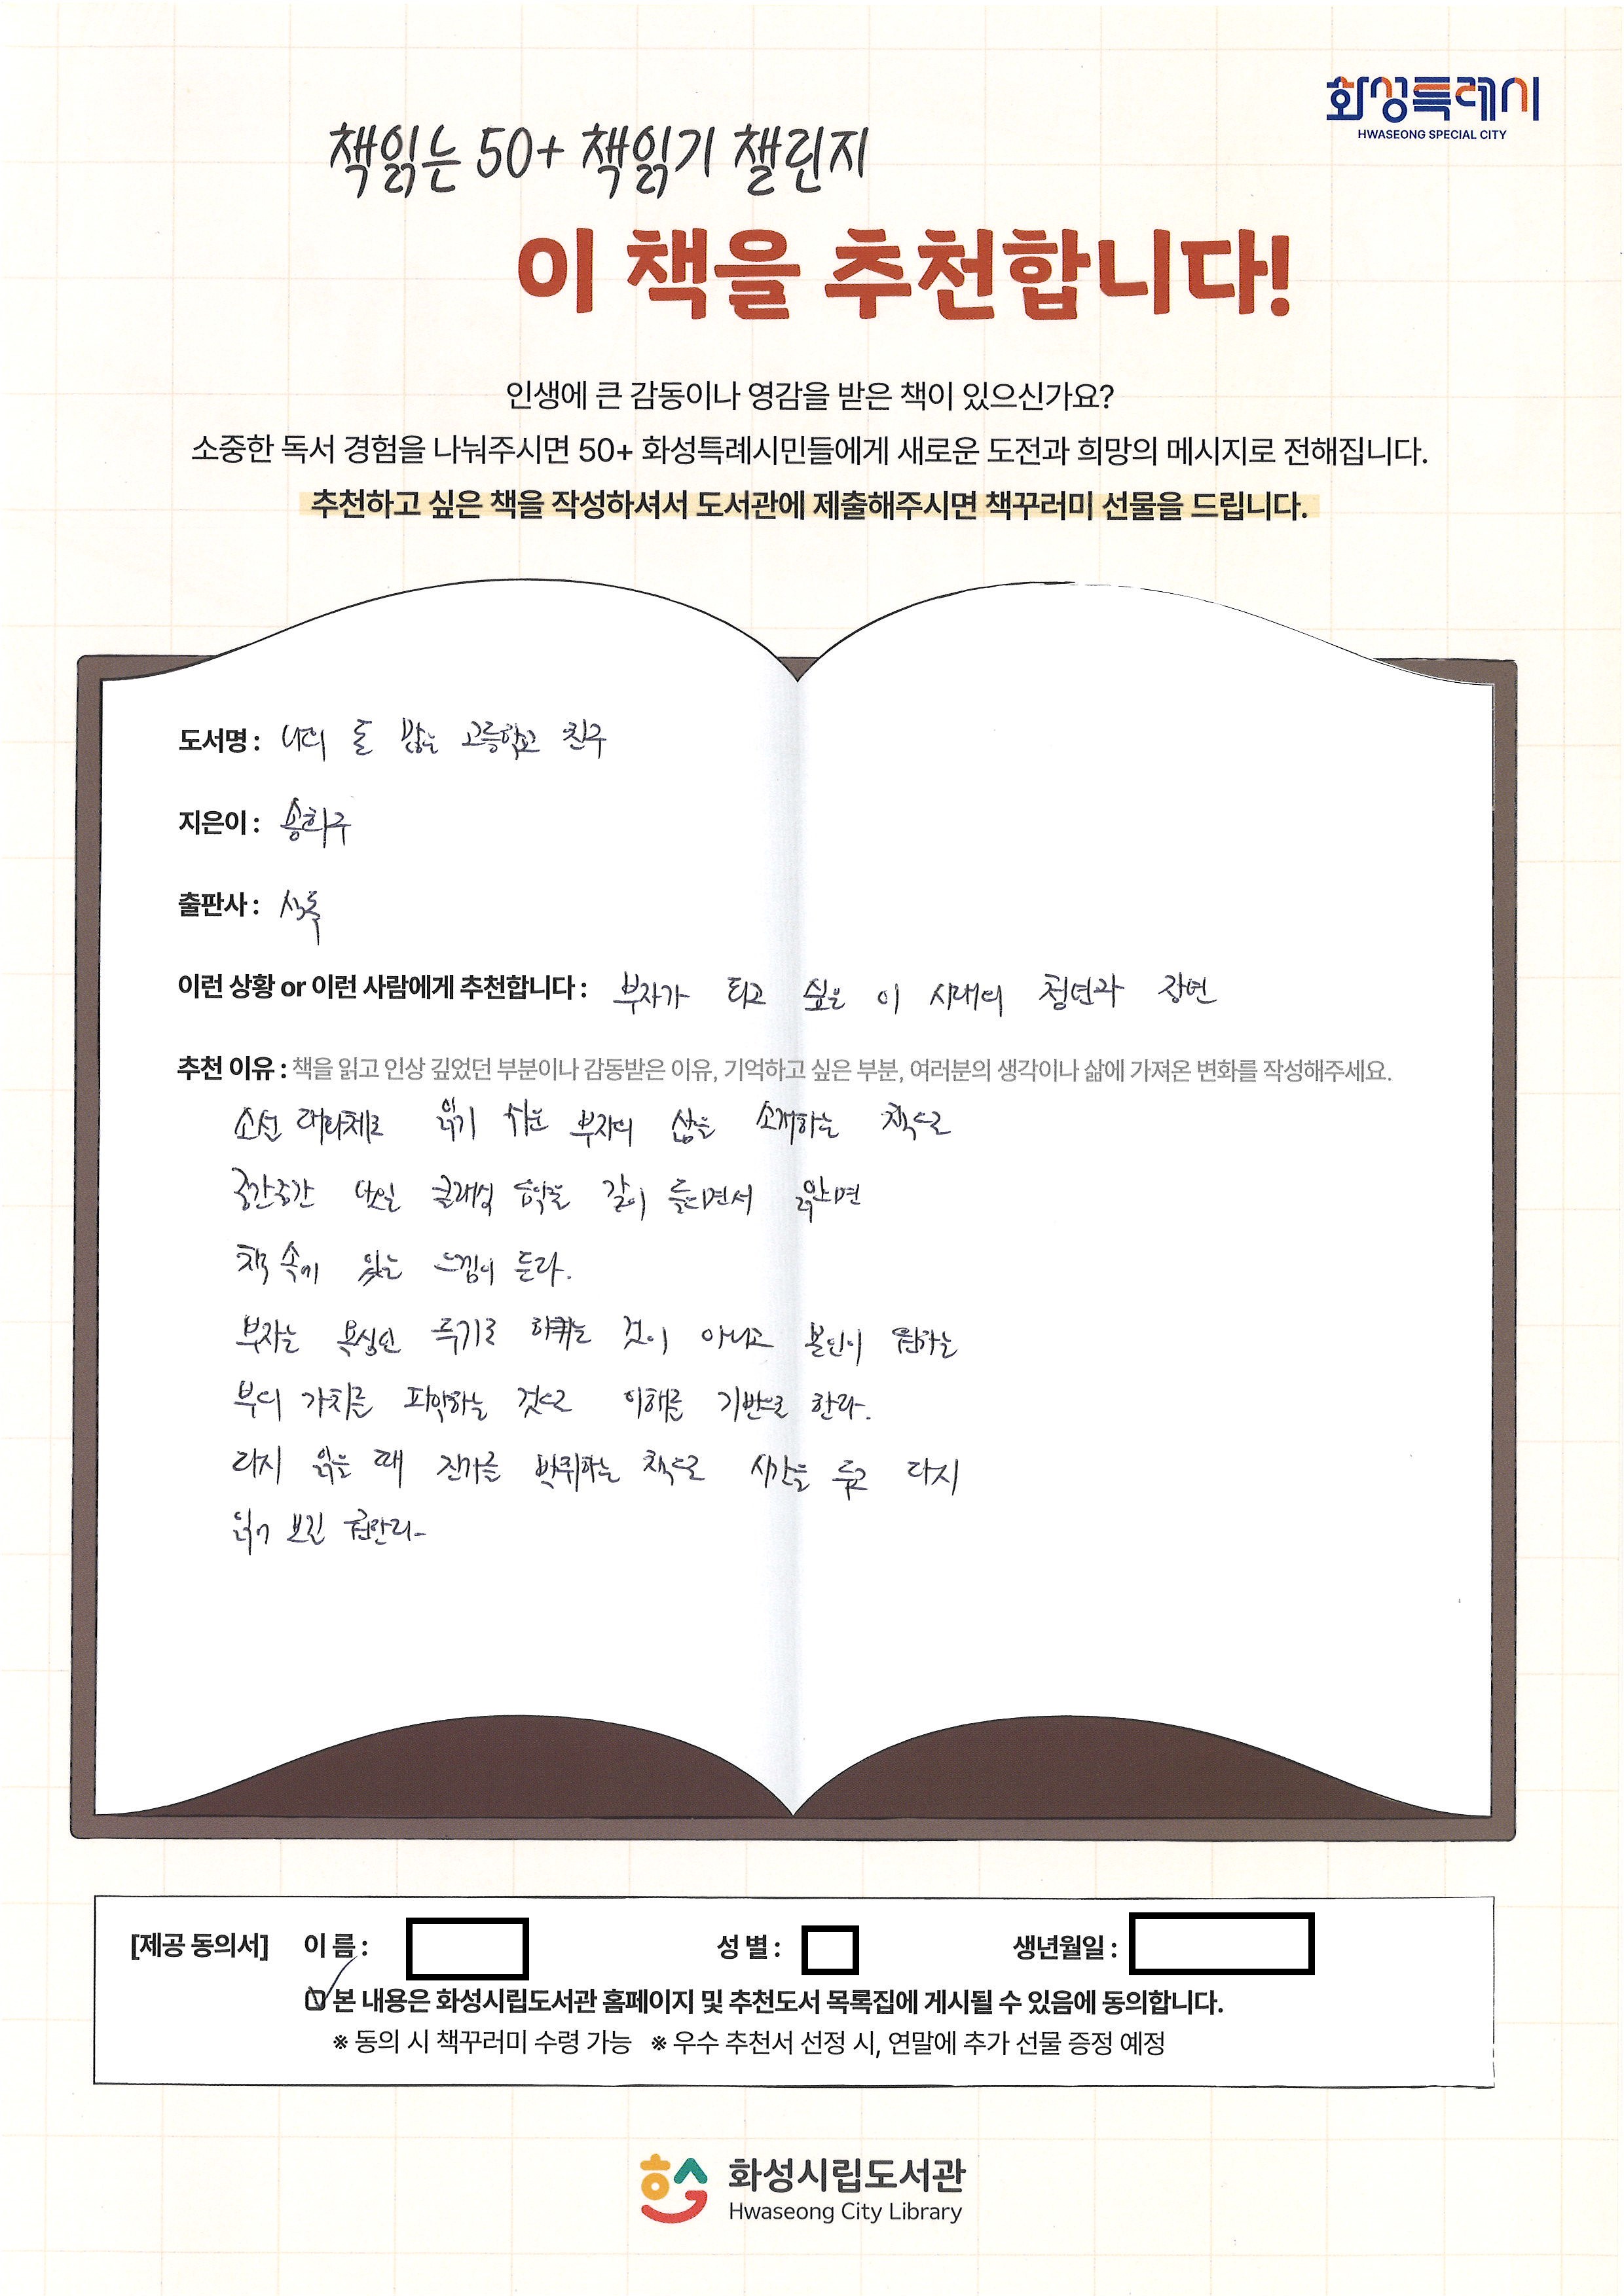 화성특례시
HWASEONG SPECIAL CITY
책읽는 50+ 책읽기 챌린지
이 책을 추천합니다!
인생에 큰 감동이나 영감을 받은 책이 있으신가요?
소중한 독서 경험을 나눠주시면 50+ 화성특례시민들에게 새로운 도전과 희망의 메시지로 전해집니다.
추천하고 싶은 책을 작성하셔서 도서관에 제출해주시면 책꾸러미 선물을 드립니다.
도서명 : 나의 돈 많은 고등학교 친구
지은이 : 송희구
출판사 :
이런 상황 or 이런 사람에게 추천합니다 : 부자가 되고 싶은 이 시대의 청년과 장년
추천 이유 : 책을 읽고 인상 깊었던 부분이나 감동받은 이유, 기억하고 싶은 부분, 여러분의 생각이나 삶에 가져온 변화를 작성해주세요.
소설 대화체로 읽기 쉬운 부자의 삶을 소개하는 책으로
중간중간 클래식 음악을 같이 들으면서 읽으면
책 속에 있는 느낌이 든다.
부자는 욕심만 것이 아니고 본인이 원하는
부의 가치를 파악하는 것으로 이해를 기반으로 한다.
다시 읽을 때 진가를 발휘하는 책으로 시간을 두고 다시
읽어 보길 권한다.
[제공 동의서] 이 름 : 성 별 : 생년월일 :
본 내용은 화성시립도서관 홈페이지 및 추천도서 목록집에 게시될 수 있음에 동의합니다.
※ 동의 시 책꾸러미 수령 가능 ※ 우수 추천서 선정 시, 연말에 추가 선물 증정 예정
화성시립도서관
Hwaseong City Library